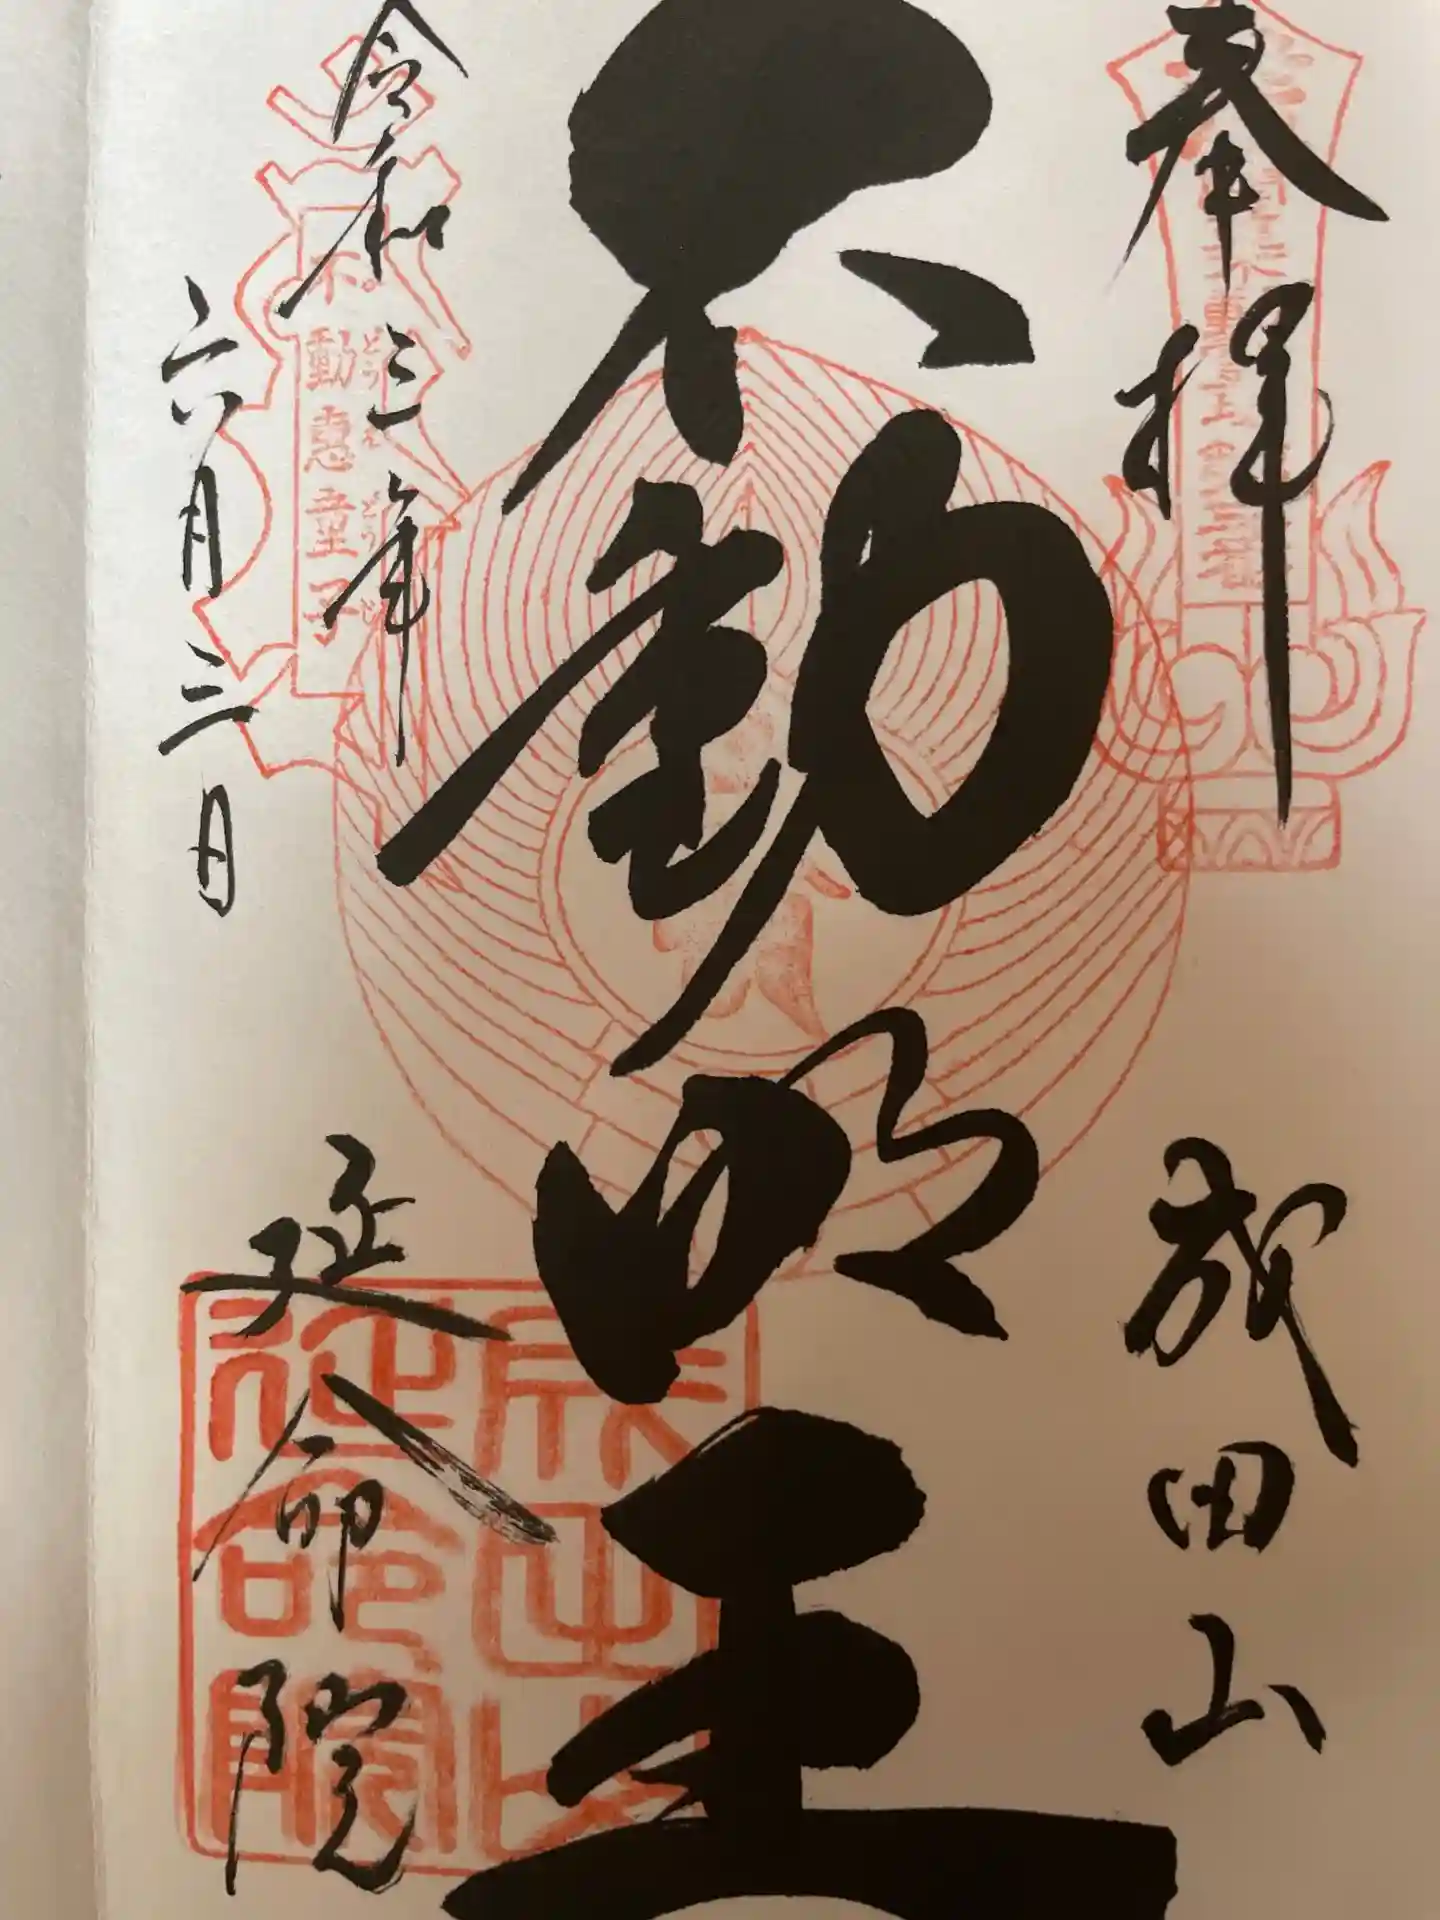 奉拝
成田山
不動明王
令和三年
六月三日
延命院
不動惠童子
どう え どう じ
成田山
延命院